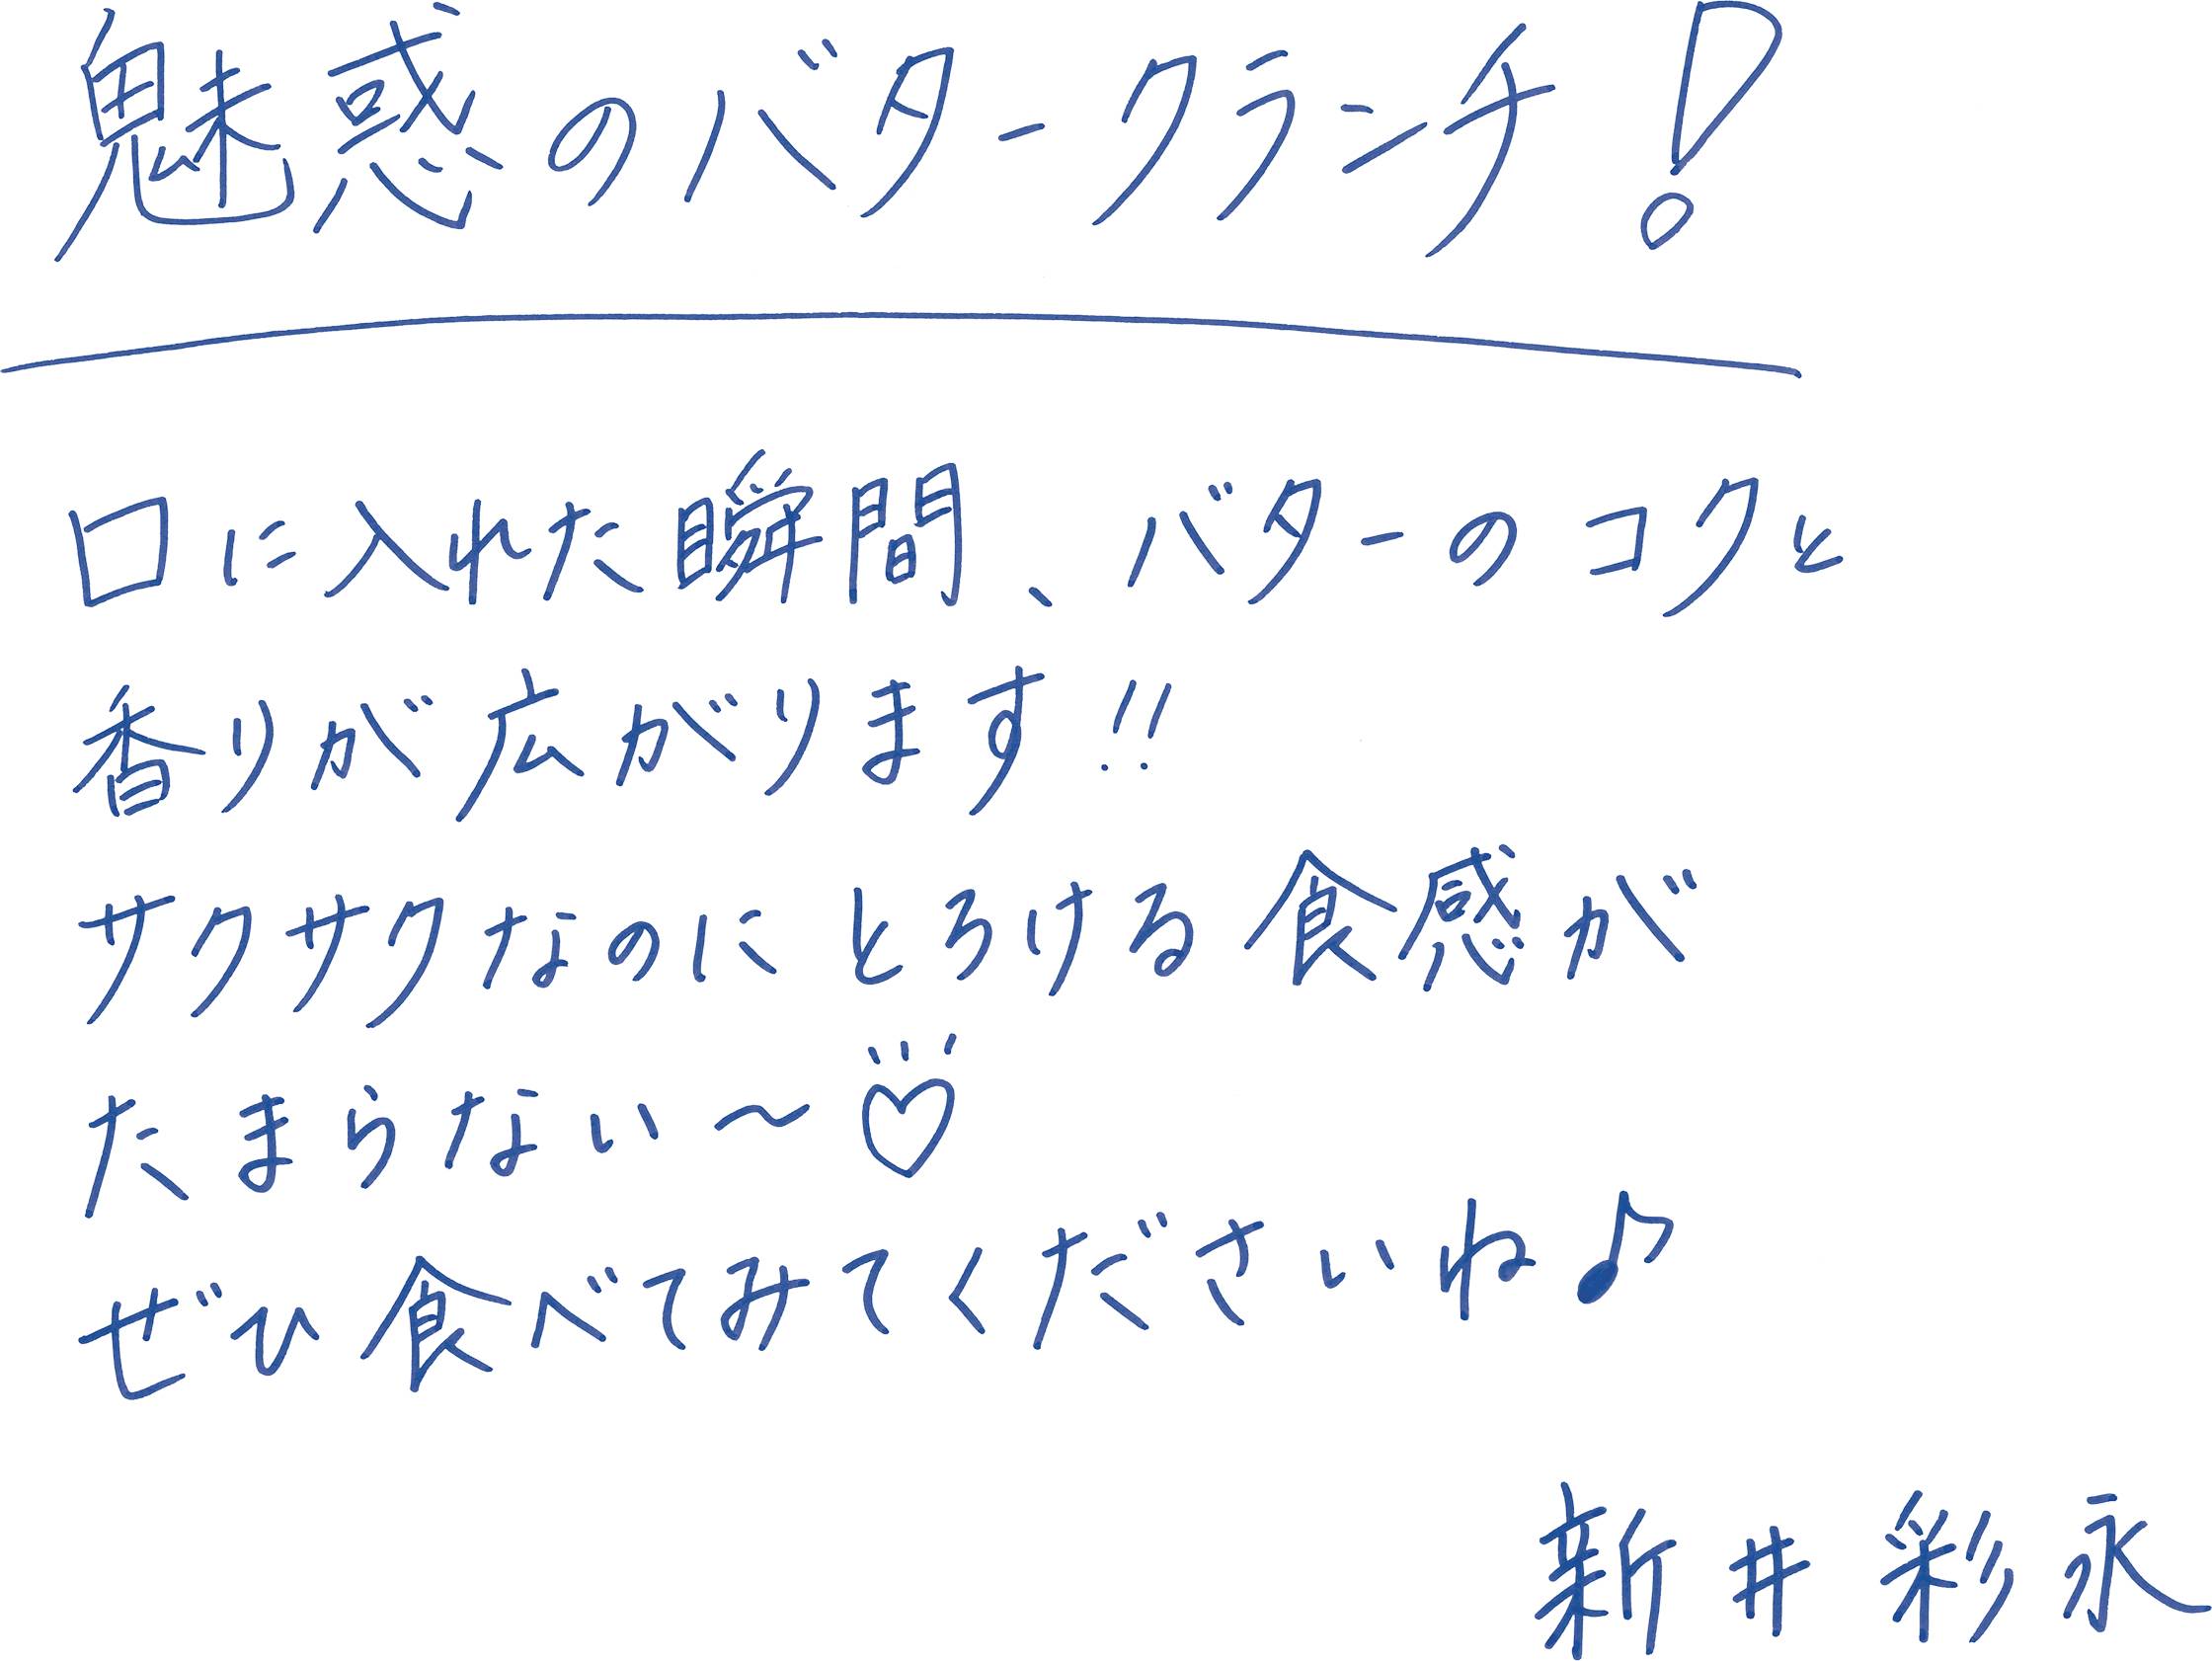 魅惑のバタークランチ!
口に入れた瞬間、バターのコクと
香りが広がります!!
サクサクなのにとろける食感が
たまらない〜♡
ぜひ食べてみてくださいね♪
新井彩永